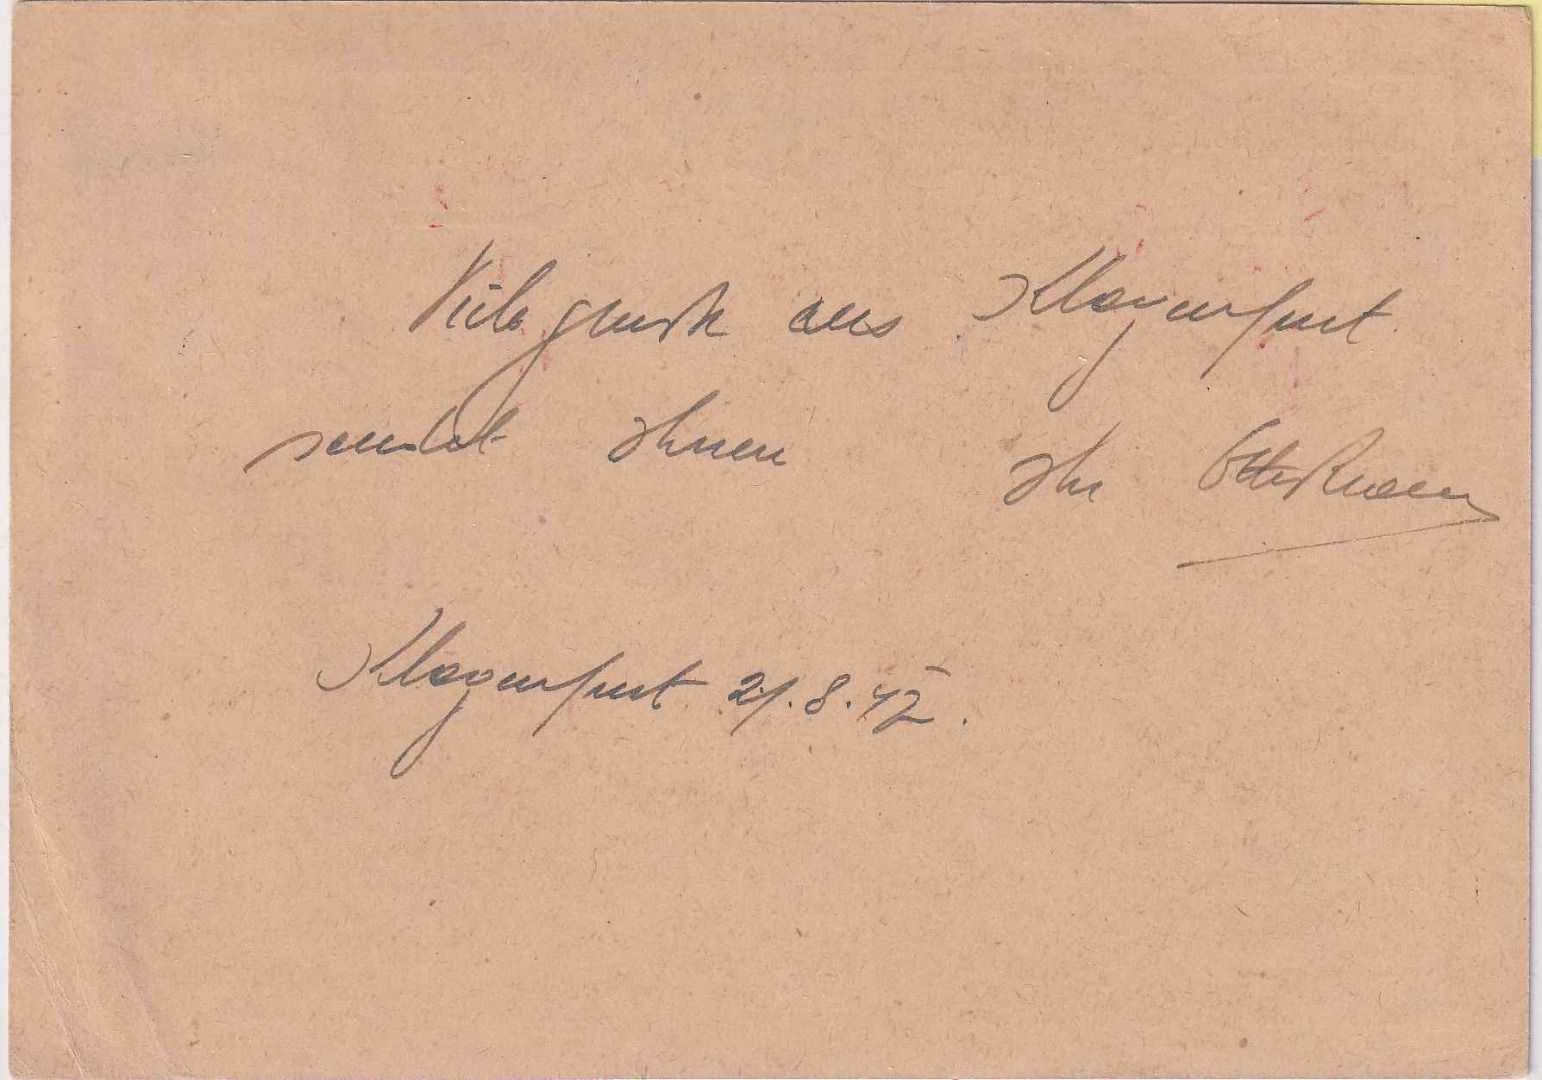 Viele grüsse aus Klagenfurt
sendet Ihnen Ihr Otto
Klagenfurt 21.8.42.